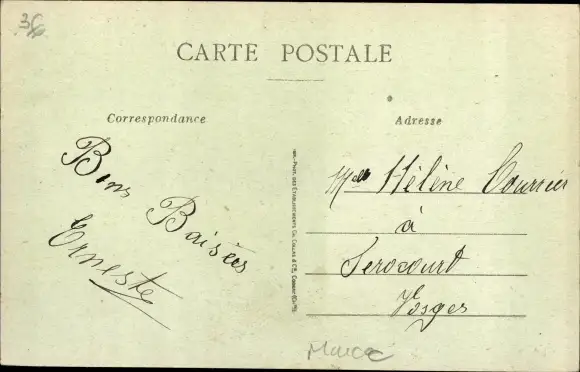 CARTE POSTALE
Correspondance
Adresse
Bons
Baisers
Erneste
Melle Hélène Courrier
à
Serocourt
Vosges